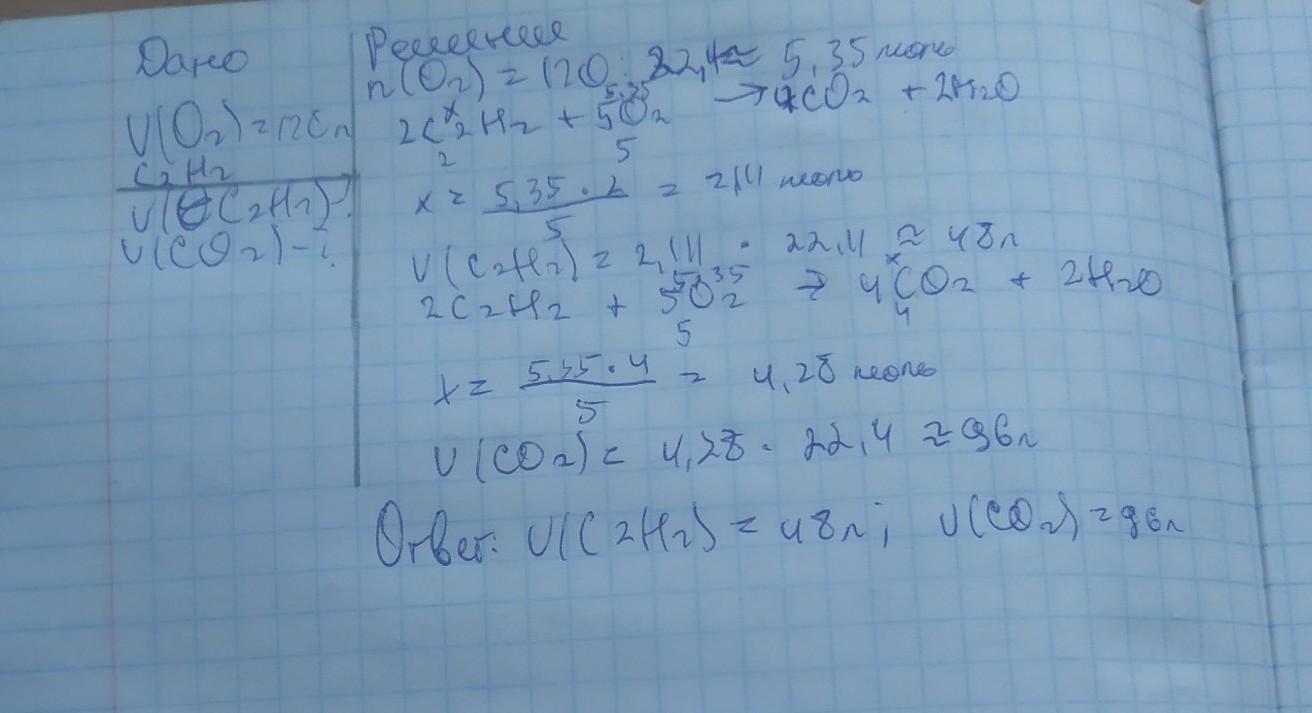 Дано
V(O2) = 120 л
C2H2
V(C2H2)-?
V(CO2)-?
Решение
n(O2) = 120 : 22,4 ≈ 5,35 моль
x 5,35
2C2H2 + 5O2 → 4CO2 + 2H2O
2 5
x = 5,35 · 2 / 5 = 2,14 моль
V(C2H2) = 2,14 · 22,4 ≈ 48 л
5,35 x
2C2H2 + 5O2 → 4CO2 + 2H2O
5 4
x = 5,35 · 4 / 5 = 4,28 моль
V(CO2) = 4,28 · 22,4 ≈ 96 л
Ответ: V(C2H2) = 48 л; V(CO2) = 96 л